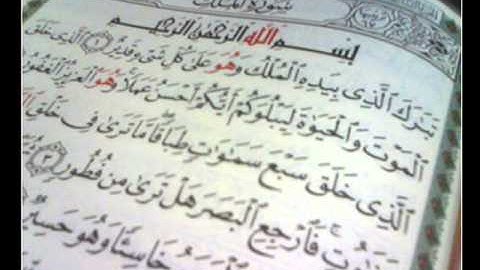 سورة الملك
بِسْمِ اللَّهِ الرَّحْمَٰنِ الرَّحِيمِ
تَبَٰرَكَ الَّذِى بِيَدِهِ الْمُلْكُ وَهُوَ عَلَىٰ كُلِّ شَىْءٍ قَدِيرٌ ١ الَّذِى خَلَقَ
الْمَوْتَ وَالْحَيَوٰةَ لِيَبْلُوَكُمْ أَيُّكُمْ أَحْسَنُ عَمَلًا وَهُوَ الْعَزِيزُ الْغَفُورُ
الَّذِى خَلَقَ سَبْعَ سَمَٰوَٰتٍ طِبَاقًا مَّا تَرَىٰ فِى خَلْقِ
فَارْجِعِ الْبَصَرَ هَلْ تَرَىٰ مِن فُطُورٍ ٣
خَاسِئًا وَهُوَ حَسِيرٌ